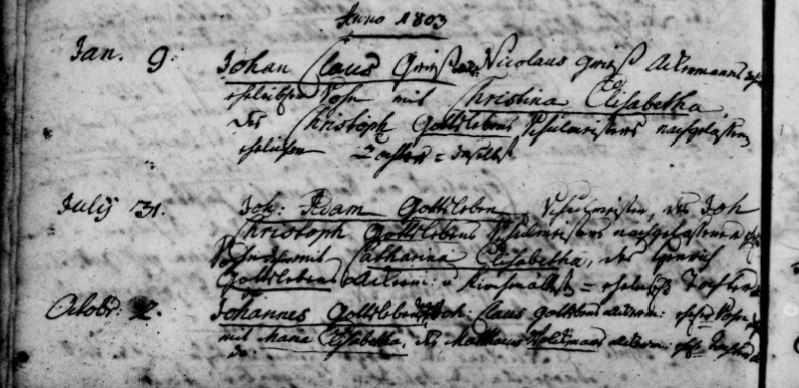 Anno 1803
Jan. 9. Johan Claus Grieß Nicolaus Grieß Ackermanns
ehelichen Sohn mit Christina Elisabetha,
des Christoph Gottslebens Schulmeisters nachgelaßen
ehelichen Tochter = daselbst
July 31. Joh: Adam Gottsleben Schulmeister, des Joh
Christoph Gottslebens Schulmeisters nachgelassener
Sohn mit Catharina Elisabetha, des Henrich
Gottslebens Ackerm: u Kirchenältest = Tochter
Octobr: 2. Johannes Gottsleben Joh: Claus Gottslebens Ackerm: Sohn
mit Maria Elisabetha, des Matthaeus Ackerm: Tochter